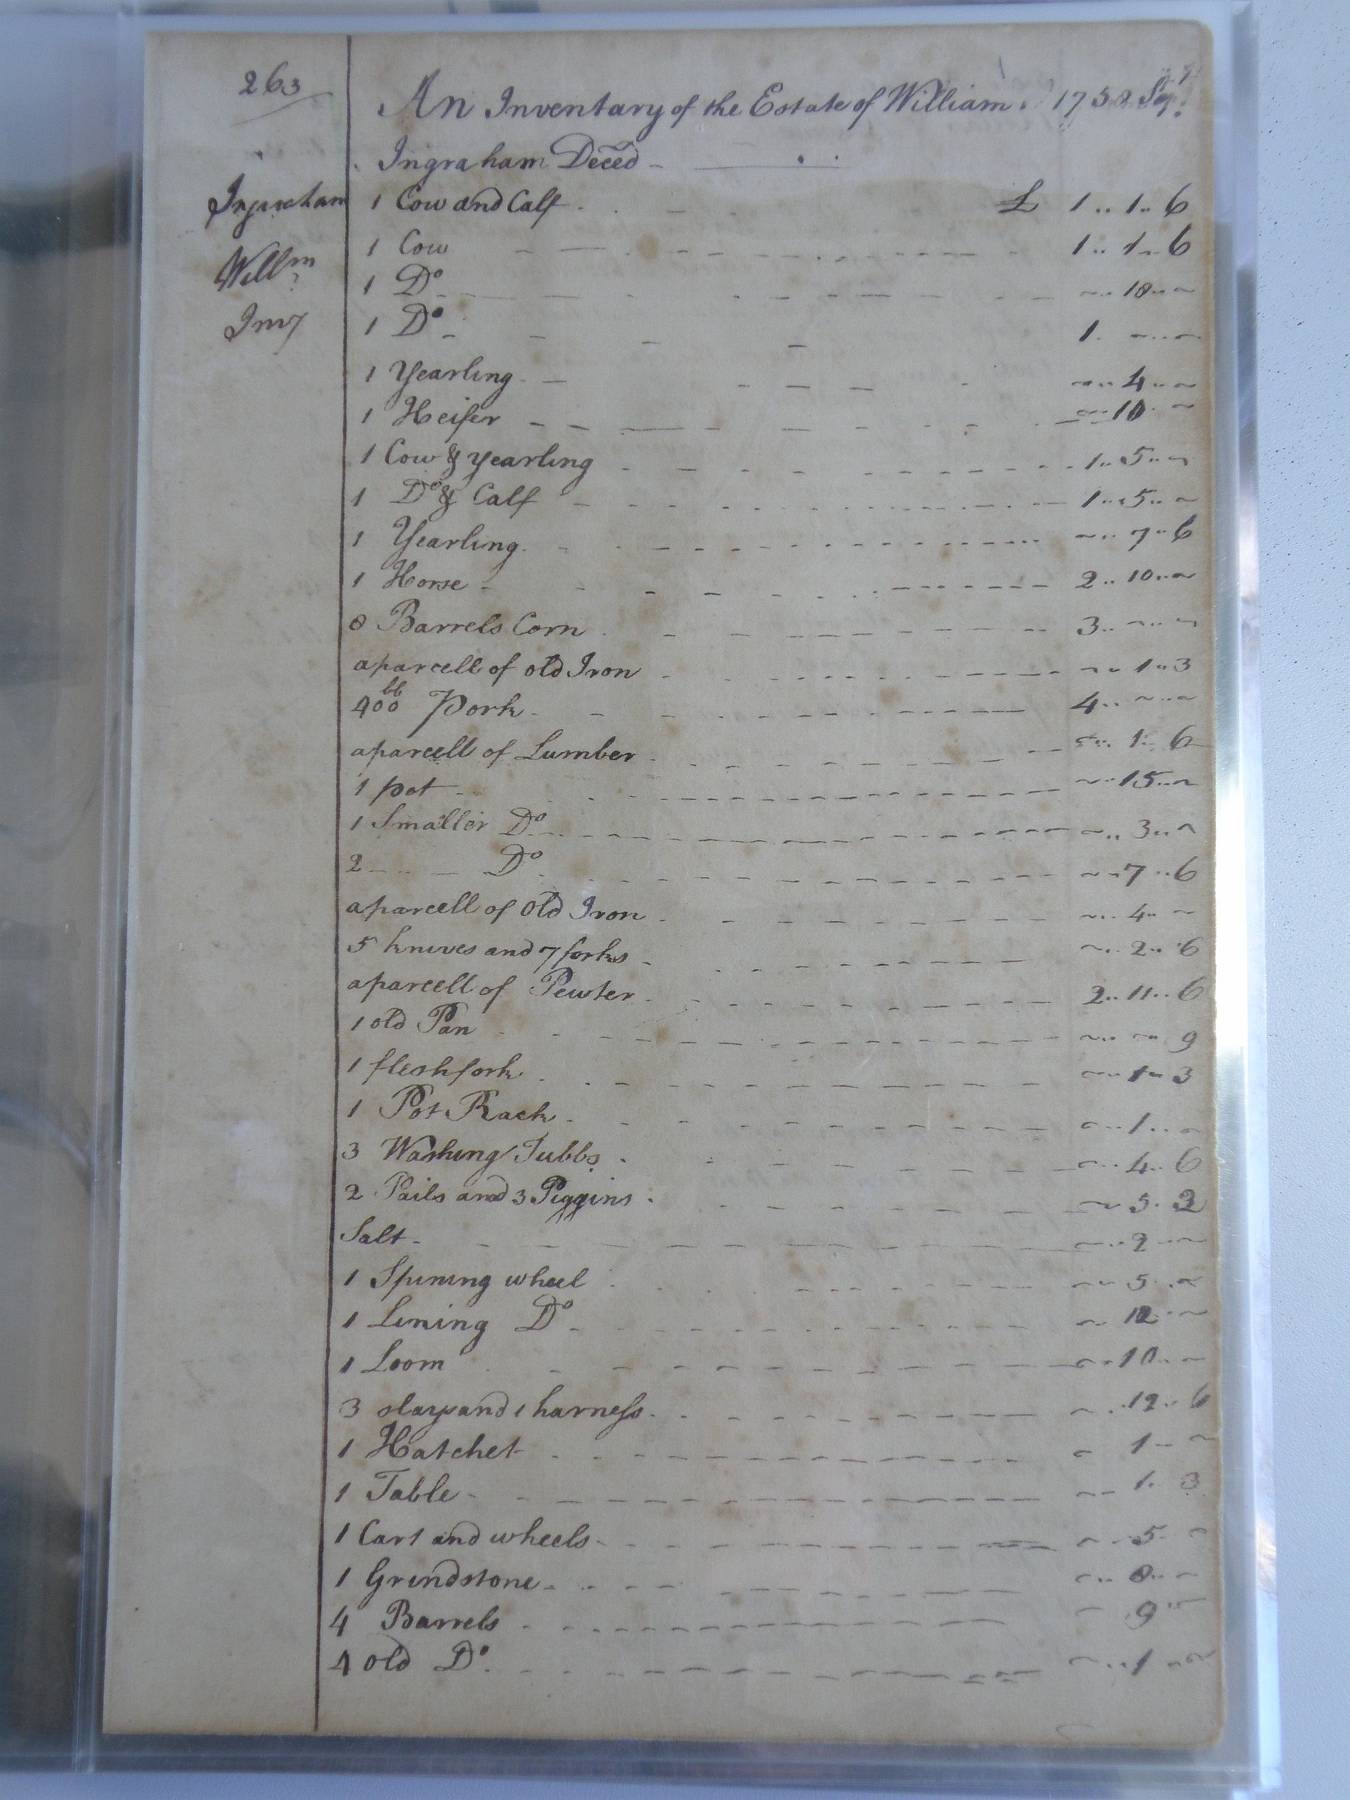 263
An Inventary of the Estate of William 1758 Sepr.
Ingraham Deced
Ingraham
Willm
Invy
1 Cow and Calf £ 1 .. 1 .. 6
1 Cow 1 .. 1 .. 6
1 Do ~ .. 18 .. ~
1 Do 1 . ~ .. ~
1 Yearling ~ .. 4 .. ~
1 Heifer ~ .. 10 . ~
1 Cow & yearling 1 .. 5 .. ~
1 Do & Calf 1 .. 5 .. ~
1 Yearling ~ .. 7 .. 6
1 Horse 2 .. 10 .. ~
8 Barrels Corn 3 .. ~ .. ~
a parcell of old Iron ~ .. 1 .. 3
400 lb Pork 4 .. ~ .. ~
a parcell of Lumber ~ .. 1 .. 6
1 pot ~ .. 15 .. ~
1 Smaller Do ~ .. 3 .. ~
2 Do ~ .. 7 .. 6
a parcell of Old Iron ~ .. 4 .. ~
5 knives and 7 forks ~ .. 2 .. 6
a parcell of Pewter 2 .. 11 .. 6
1 old Pan ~ .. ~ .. 9
1 fleshfork ~ .. 1 .. 3
1 Pot Rack ~ .. 1 .. ~
3 Washing Tubbs ~ .. 4 .. 6
2 Pails and 3 Piggins ~ 5 . 3
Salt ~ .. 2 .. ~
1 Spining wheel ~ .. 5 .. ~
1 Lining Do ~ 12 .. ~
1 Loom ~ .. 10 .. ~
3 slays and 1 harness ~ .. 12 .. 6
1 Hatchet ~ 1 .. ~
1 Table ~ 1 . 3
1 Cart and wheels ~ .. 5 . ~
1 Grindstone ~ .. 8 .. ~
4 Barrels ~ . 9 .. ~
4 old Do ~ .. 1 .. ~